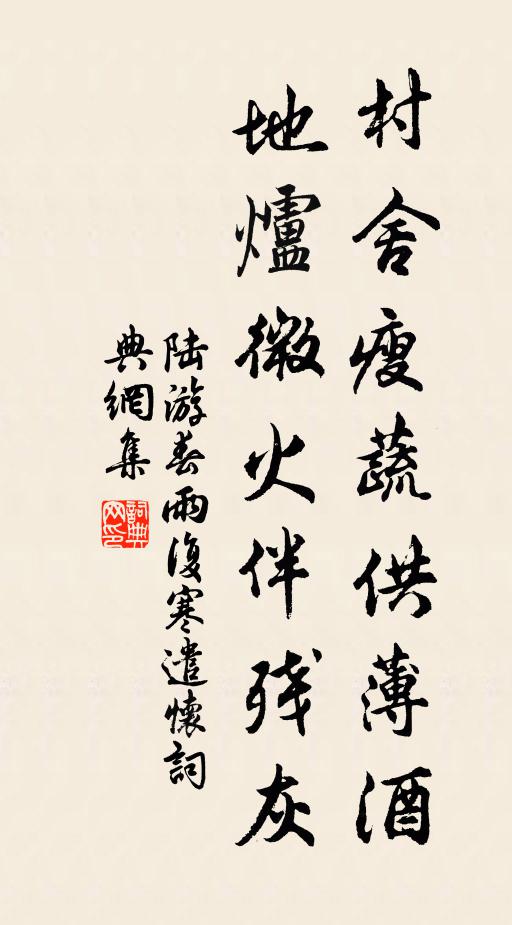 村舍瘦蔬供薄酒
地爐微火伴残灰
陆游春雨復寒遣懷詞
典網集
詞典网印